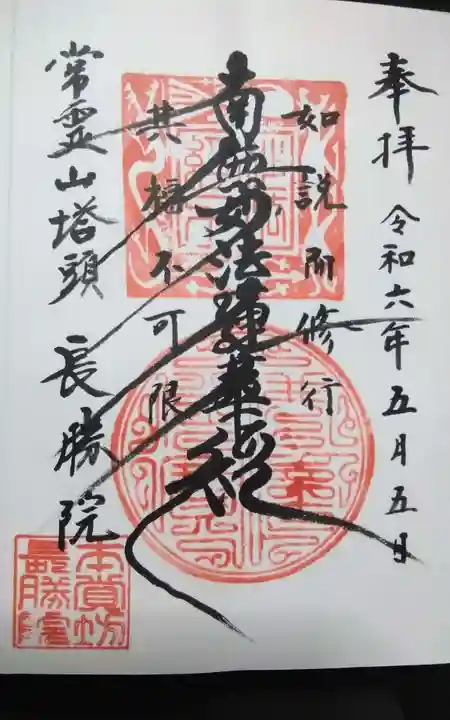 奉拝 令和六年五月五日
如説所修行
南無妙法蓮華経
其福不可限
常霊山塔頭 長勝院